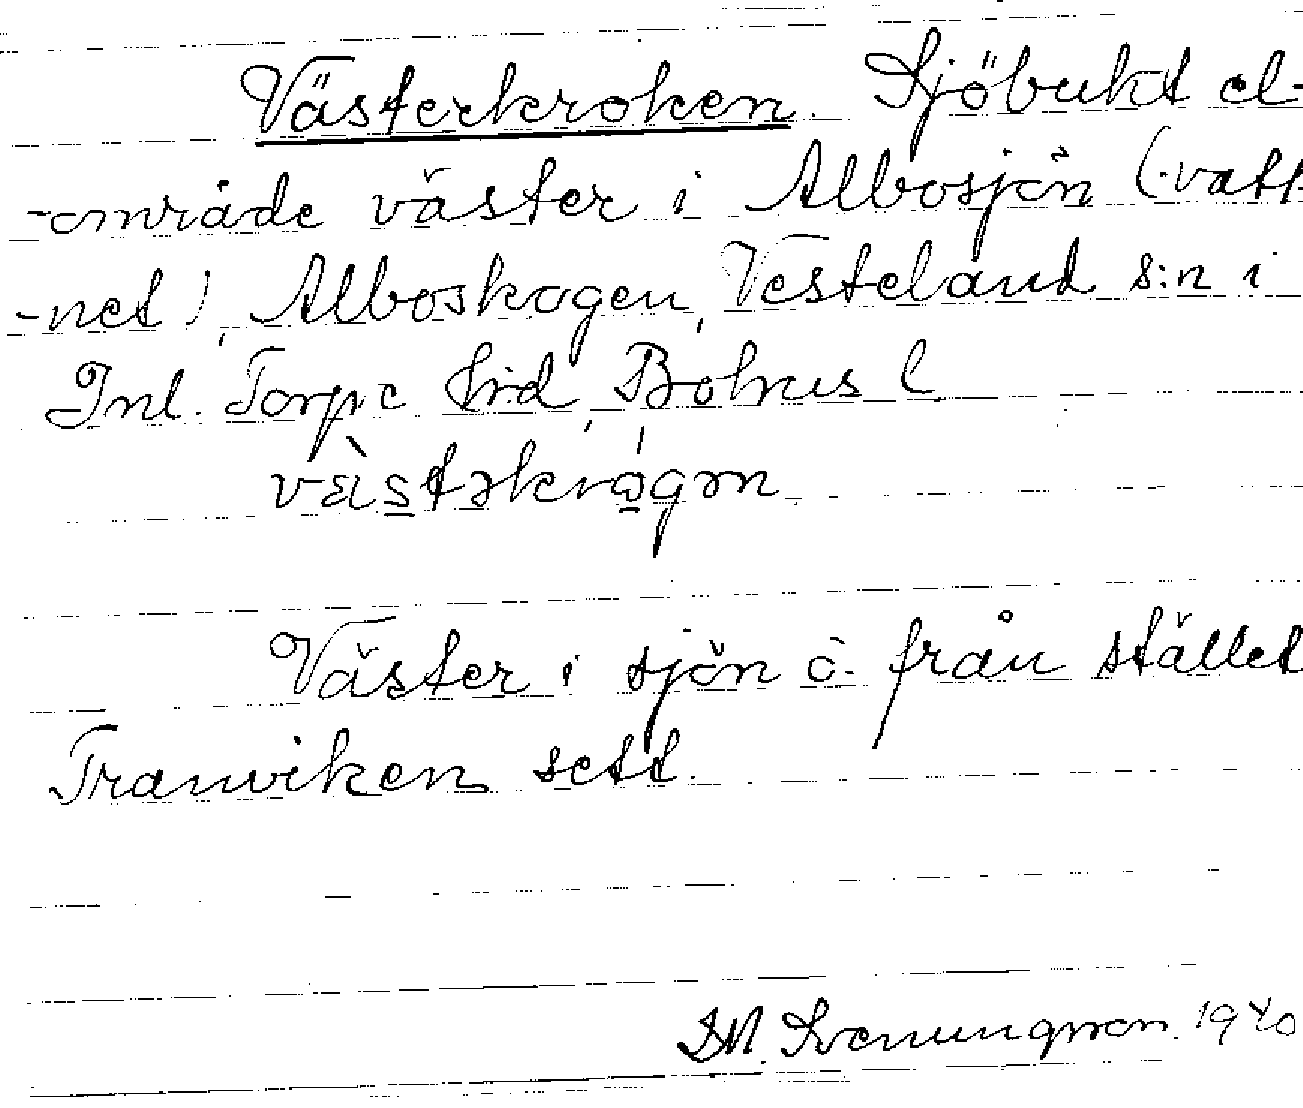 Västerkroken. Sjöbukt el-
-område väster i Albosjön (vatt-
-net), Alboskogen, Vesteland s:n i
Inl. Torpe hrd, Bohus l.
vὲstəkrógən
Väster i sjön o. från stället
Tranviken sett.
Svenungsson. 1940